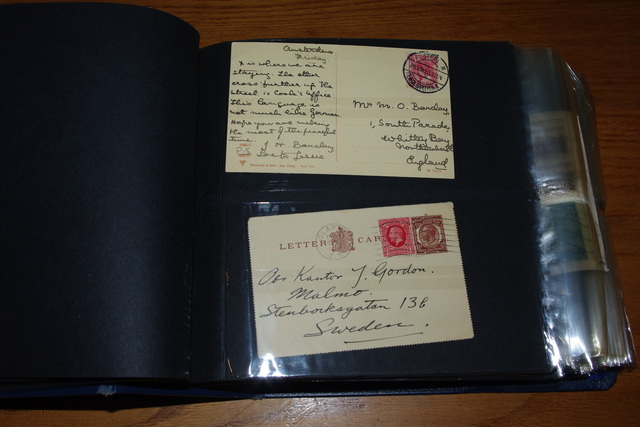 Amsterdam
Friday
X is where we are
staying. The other
cross further up the
street is Cook's office
This language is
not much like German
Hope you are making
the most of the peaceful
time.
J. H. Barclay
P.S.
Mrs M. O. Barclay,
1, South Parade,
Whitley Bay
England
LETTER CAR
Kantor J. Gordon.
Malmö.
Stenbocksgatan 13b
Sweden.